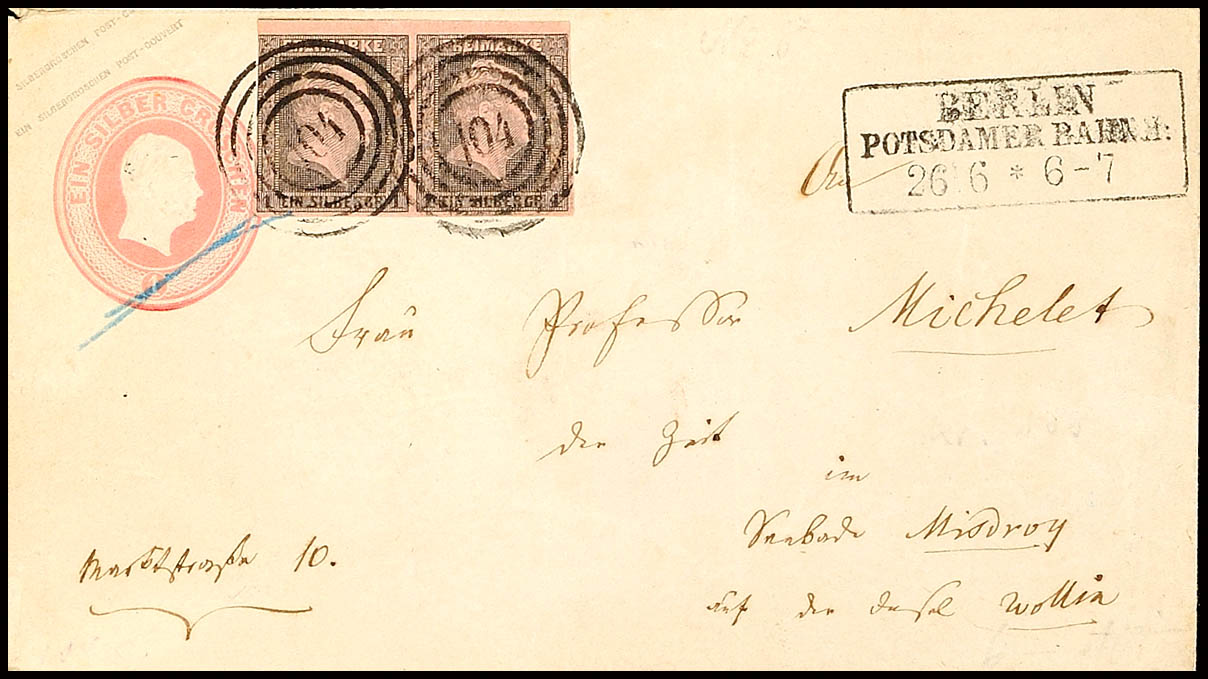 EIN SILBERGROSCHEN POST-COUVERT
EIN SILBER GROSCHEN
1
FREIMARKE FREIMARKE
104 104
1 EIN SILBERGR. 1 1 EIN SILBERGR. 1
BERLIN
POTSDAMER BAHNH:
26 6 * 6-7
An
Frau Professor Michelet
der Zeit
im
Seebade Misdroy
auf der Insel Wollin
Marktstraße 10.